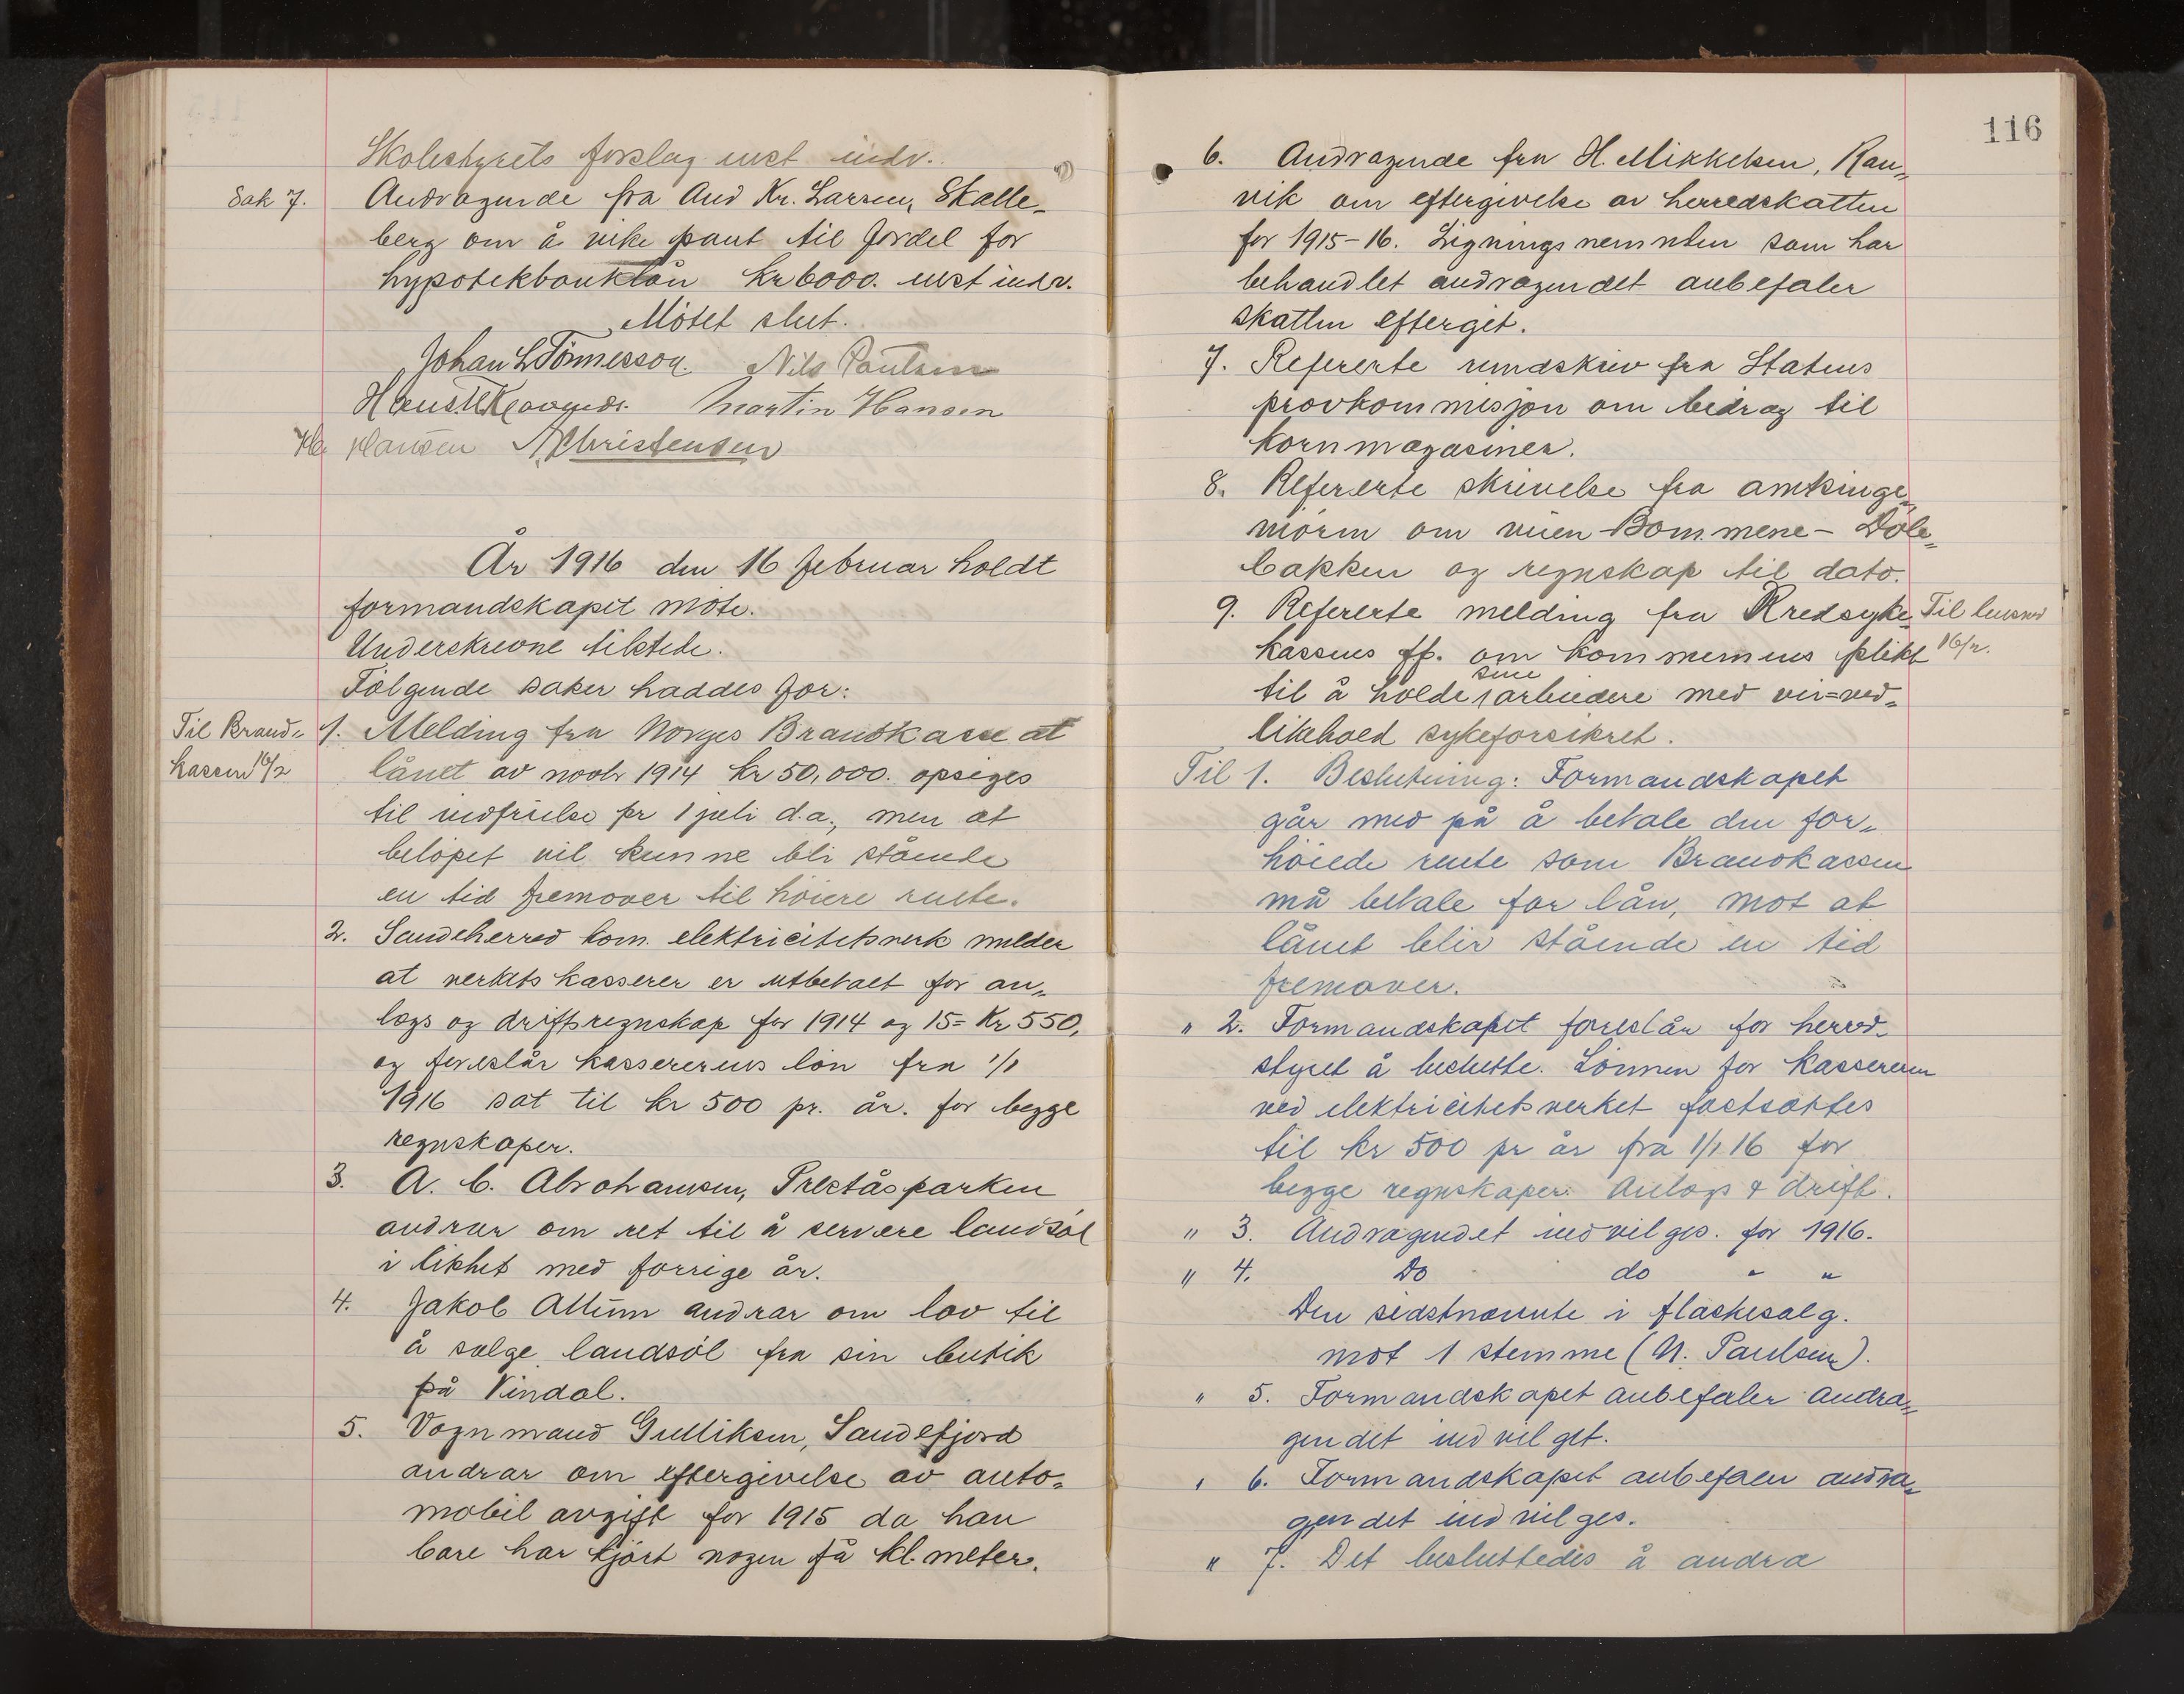 Skolestyrets forslag enst indv.
Sak 7. Andragende fra And Kr. Larsen, Skalle-
berg om å vike pant til fordel for
hypotekbanklån kr 6000. enst indv.
Mötet slut.
Johan L Tönnesson. Nils Paulsen
Martin Hansen
Hansen A Christensen
År 1916 den 16 februar holdt
formandskapet möte.
Underskrevne tilstede.
Fölgende saker haddes for:
Til Brand-
kassen 16/2
1. Melding fra Norges Brandkasse at
lånet av novbr 1914 kr 50,000. opsiges
til indfrielse pr 1 juli d.a., men at
belöpet vil kunne bli stående
en tid fremover til höiere rente.
2. Sandeherred kom. elektricitetsverk melder
at verkets kasserer er utbetalt for an-
lægs og driftsregnskap for 1914 og 15 = Kr 550,
og foreslår kassererens lön fra 1/1
1916 sat til kr 500 pr. år. for begge
regnskaper.
3. A. C. Abrahamsen, Preståsparken
andrar om ret til å servere landsöl
i likhet med forrige år.
4. Jakob Allum andrar om lov til
å sælge landsöl fra sin butik
på Vindal.
5. Vognmand Gulliksen, Sandefjord
andrar om eftergivelse av auto-
mobil avgift for 1915 da han
bare har kjört nogen få kl. meter.
116
6. Andragende fra H. Mikkelsen, Ran-
vik om eftergivelse av herredskatten
for 1915-16. Ligningsnemnden som har
behandlet andragendet anbefaler
skatten efterget.
7. Refererte rundskriv fra Statens
provkommisjon om bidrag til
kornmagasiner.
8. Refererte skrivelse fra amtsinge-
niörn om veien Bommene - Döle-
bakken og regnskap til dato.
9. Refererte melding fra Kredsyke-
kassens ff. om kommunens plikt
sine
til å holde arbeidere med vei=ved-
likehold sykeforsikret.
Til
16/2.
Til 1. Beslutning: Formandskapet
går med på å betale den for-
höiede rente som Brandkassen
må betale for lån, mot at
lånet blir stående en tid
fremover.
" 2. Formandskapet foreslår for herred-
styret å beslutte. Lönnen for kassereren
ved elektricitetsverket fastsættes
til kr 500 pr år fra 1/1 16 for
begge regnskaper. Anlægs & drift.
" 3. Andragendet indvilges. for 1916.
" 4. Do do " "
Den sidstnævnte i flaskesalg.
mot 1 stemme (N. Paulsen).
" 5. Formandskapet anbefaler andra-
gendet indvilget.
" 6. Formandskapet anbefaler andra-
gendet indvilges.
" 7. Det besluttedes å andra